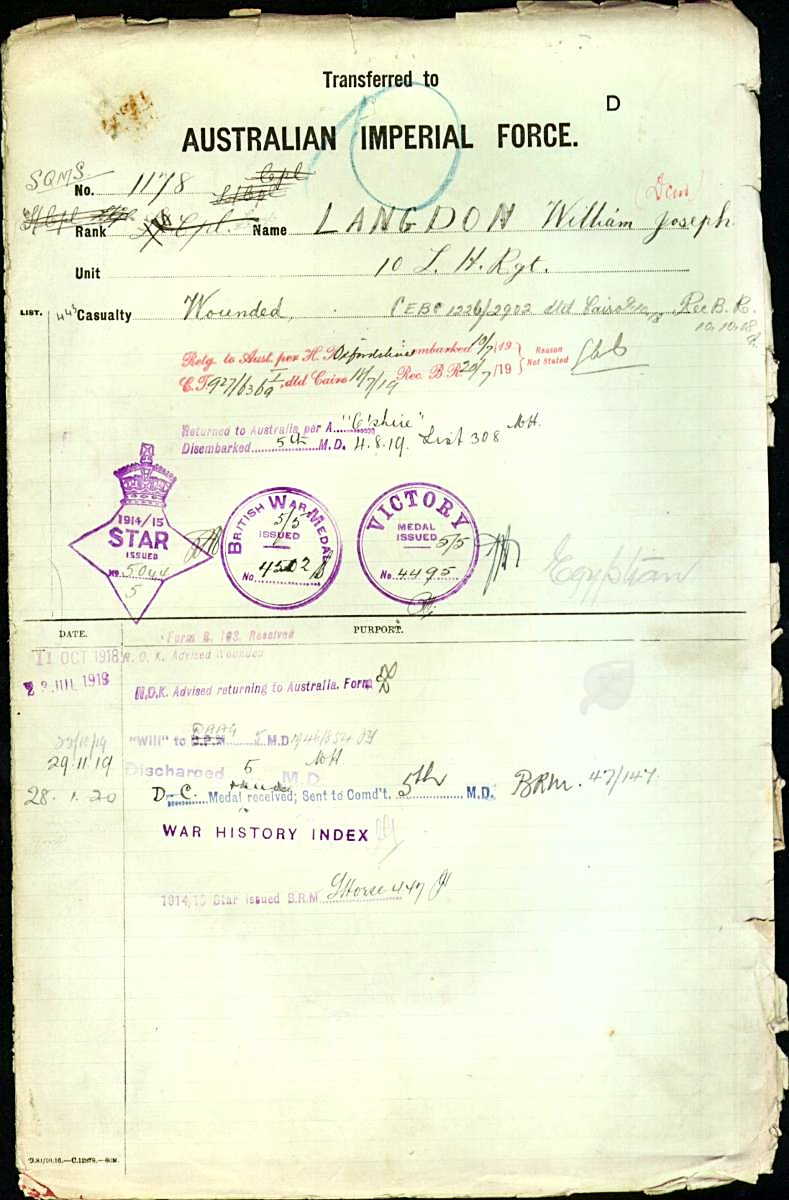 Transferred to
D
AUSTRALIAN IMPERIAL FORCE.
SQMS
No. 1178
Cpl
(Dcm)
Rank Cpl. Name LANGDON William Joseph
Unit 10 L. H. Rgt.
LIST. 443 Casualty Wounded, CEBC 1226/2902 dtd Cairo Rec B. R.
10.10.18
Retg. to Aust. per H. Oxfordshire embarked 10/7/19
C.T. dtd Cairo 11/7/19 Rec. B R 20/7/19
Reason
Not Stated
Returned to Australia per A "O'shire"
Disembarked 5th M.D. 4.8.19. List 308
1914/15
STAR
ISSUED
No. 5044
5
BRITISH WAR MEDAL
5/5
ISSUED
No. 4502
VICTORY
MEDAL
ISSUED 5/5
No. 4495
Egyptian
DATE. PURPORT.
Form B. 103. Received
11 OCT 1918 N. O. K. Advised Wounded
29 JUL 1919 N.O.K. Advised returning to Australia. Form
DAAG
23/10/19 "Will" to 5 M.D
29.11.19 Discharged 5 M.D.
28.1.20 D. C. Medal received; Sent to Comd't. 5th M.D. BRM. 47/147
WAR HISTORY INDEX
1914/15 Star issued B.R.M. LHorse 447